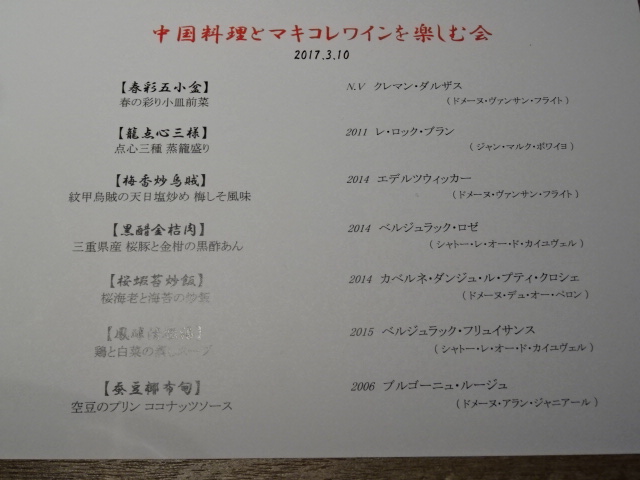 中国料理とマキコレワインを楽しむ会
2017.3.10
【春彩五小盒】
春の彩り小皿前菜
N.V クレマン・ダルザス
(ドメーヌ・ヴァンサン・フライト)
【籠点心三様】
点心三種 蒸籠盛り
2011 レ・ロック・ブラン
(ジャン・マルク・ボワイヨ)
【梅香炒烏賊】
紋甲烏賊の天日塩炒め 梅しそ風味
2014 エデルツウィッカー
(ドメーヌ・ヴァンサン・フライト)
【黒醋金桔肉】
三重県産 桜豚と金柑の黒酢あん
2014 ベルジュラック・ロゼ
(シャトー・レ・オー・ド・カイユヴェル)
【桜蝦苔炒飯】
桜海老と海苔の炒飯
2014 カベルネ・ダンジュ・ル・プティ・クロシェ
(ドメーヌ・デュ・オー・ペロン)
鶏と白菜の蒸しスープ
2015 ベルジュラック・フリュイサンス
(シャトー・レ・オー・ド・カイユヴェル)
【蚕豆椰布甸】
空豆のプリン ココナッツソース
2006 ブルゴーニュ・ルージュ
(ドメーヌ・アラン・ジャニアール)